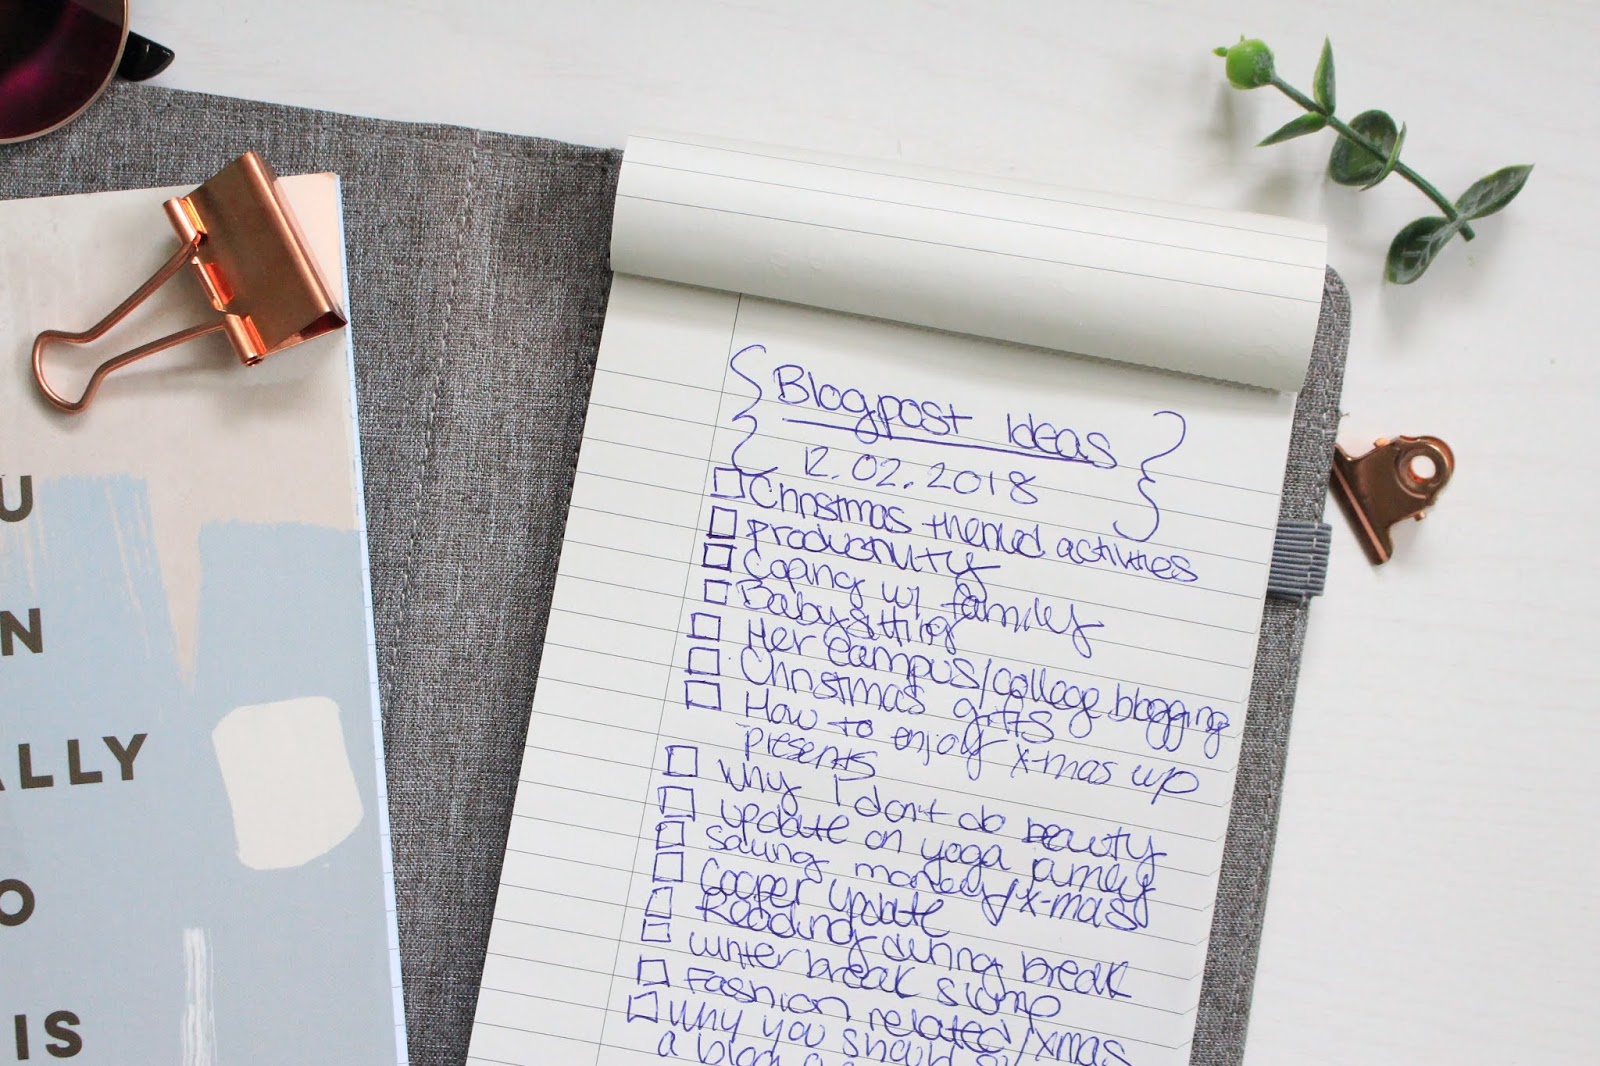 U
N
ALLY
O
IS
Blogpost Ideas
12.02.2018
Christmas themed activities
Productivity
Coping w/ family
Babysitting
Her campus/college blogging
Christmas gifts
How to enjoy x-mas w/o
presents
Why I don't do beauty
update on yoga journey
Saving money/x-mas
Cooper update
Reading during break
winter break
Fashion related/xmas
Why you should
a blog